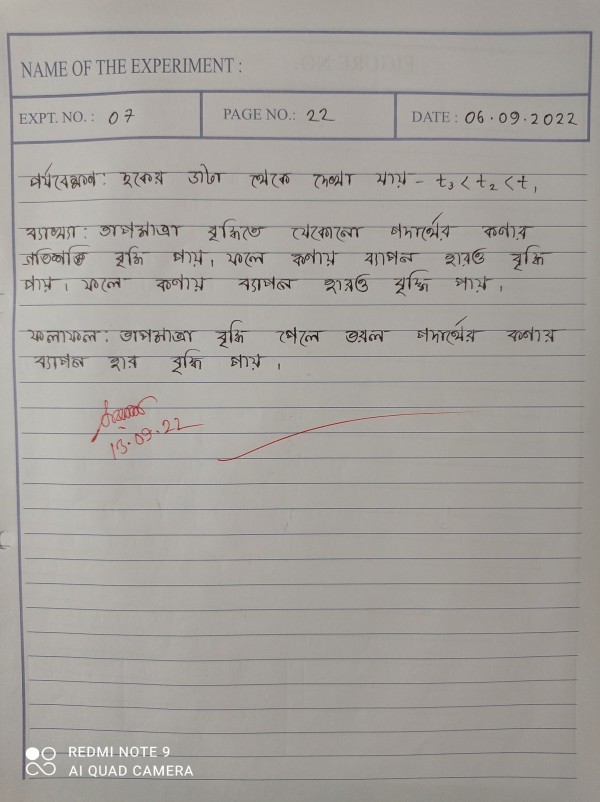 NAME OF THE EXPERIMENT :
EXPT. NO. : 07 PAGE NO.: 22 DATE : 06.09.2022
পর্যবেক্ষণ: ছকের ডাটা থেকে দেখা যায় - t₃ < t₂ < t₁
ব্যাখ্যা: তাপমাত্রা বৃদ্ধিতে যেকোনো পদার্থের কণার
গতিশক্তি বৃদ্ধি পায়। ফলে কণায় ব্যাপন হারও বৃদ্ধি
পায়। ফলে কণায় ব্যাপন হারও বৃদ্ধি পায়।
ফলাফল: তাপমাত্রা বৃদ্ধি পেলে তরল পদার্থের কণার
ব্যাপন হার বৃদ্ধি পায়।
13.09.22
REDMI NOTE 9
AI QUAD CAMERA